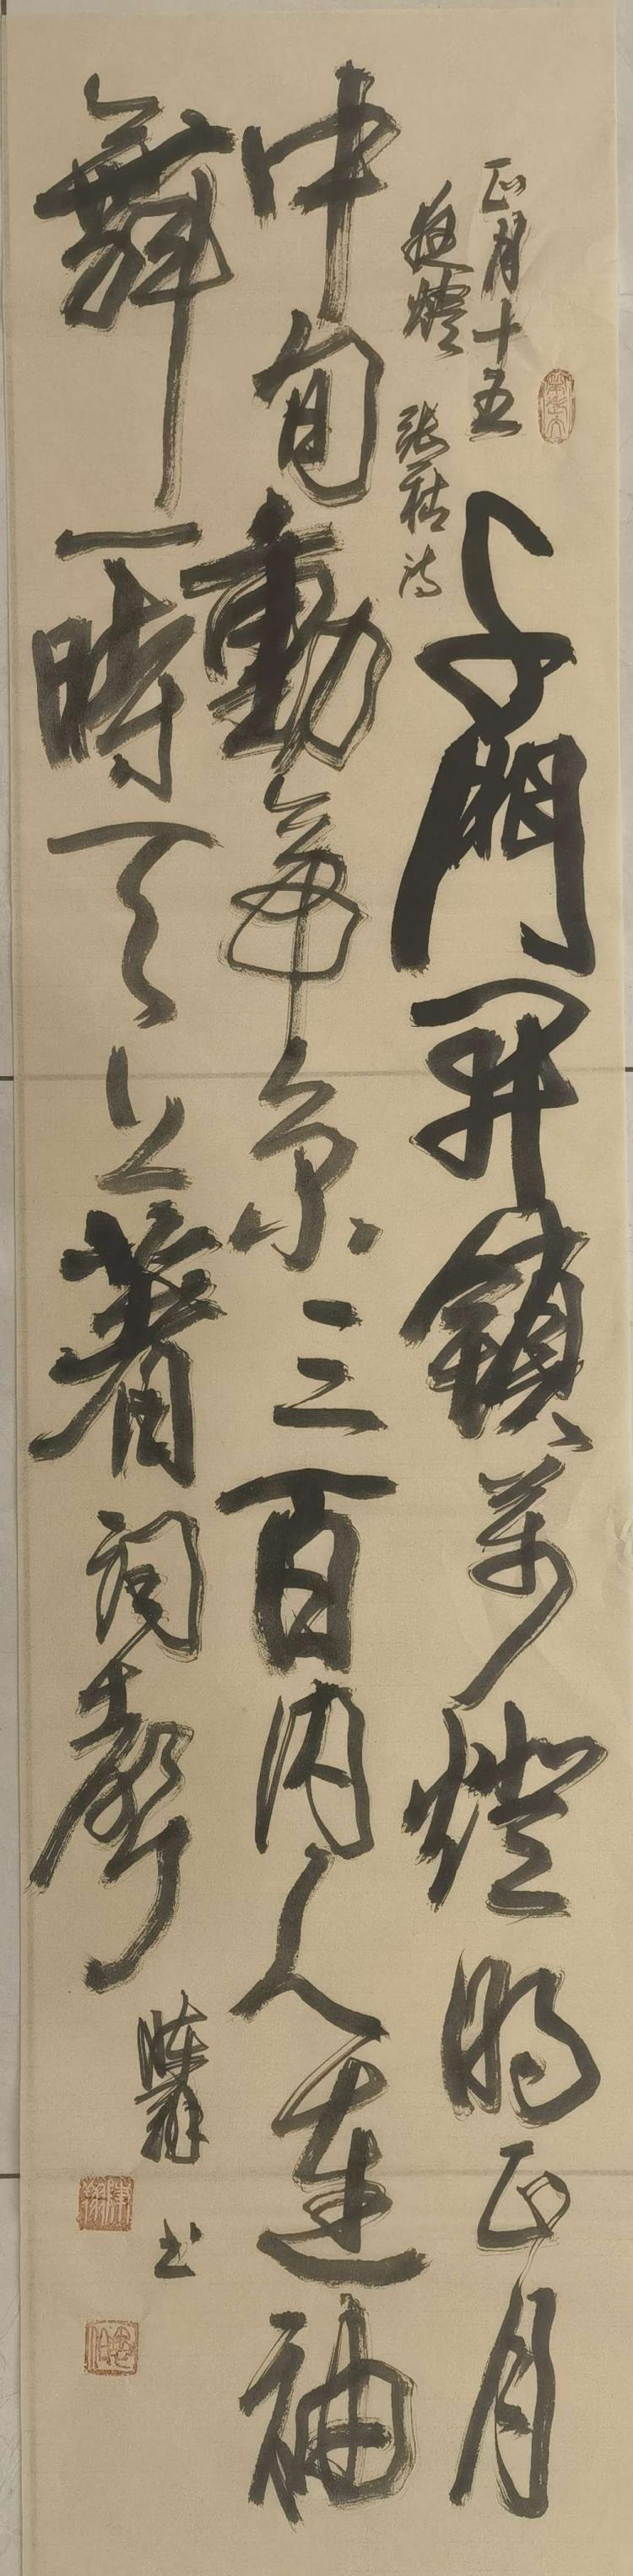 正月十五
夜燈 張祜詩
千門開鎖萬燈明正月
中旬動帝京三百内人連袖
舞一時天上著詞聲
书